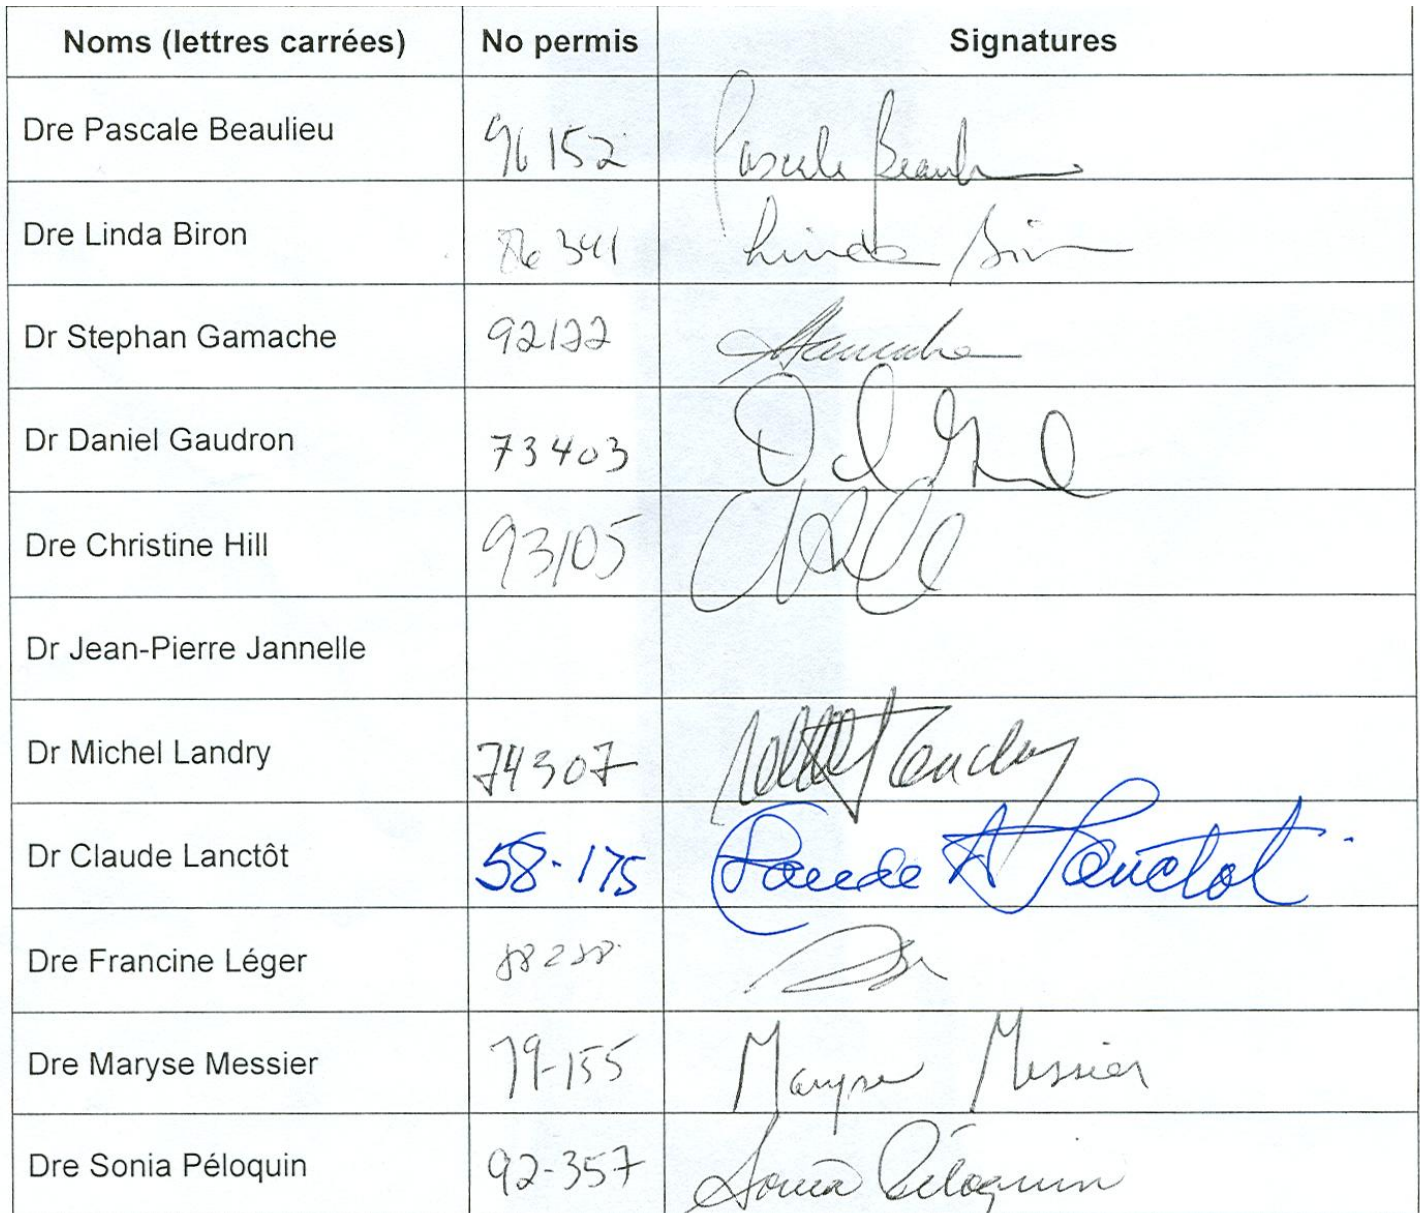 Noms (lettres carrées) No permis Signatures
Dre Pascale Beaulieu 96152 Pascale Beaulieu
Dre Linda Biron 86341 Linda Biron
Dr Stephan Gamache 92122
Dr Daniel Gaudron 73403
Dre Christine Hill 93105
Dr Jean-Pierre Jannelle
Dr Michel Landry 74307 Landry
Dr Claude Lanctôt 58-175 Claude A Lanctot
Dre Francine Léger 88288
Dre Maryse Messier 79-155 Maryse Messier
Dre Sonia Péloquin 92-357 Sonia Péloquin